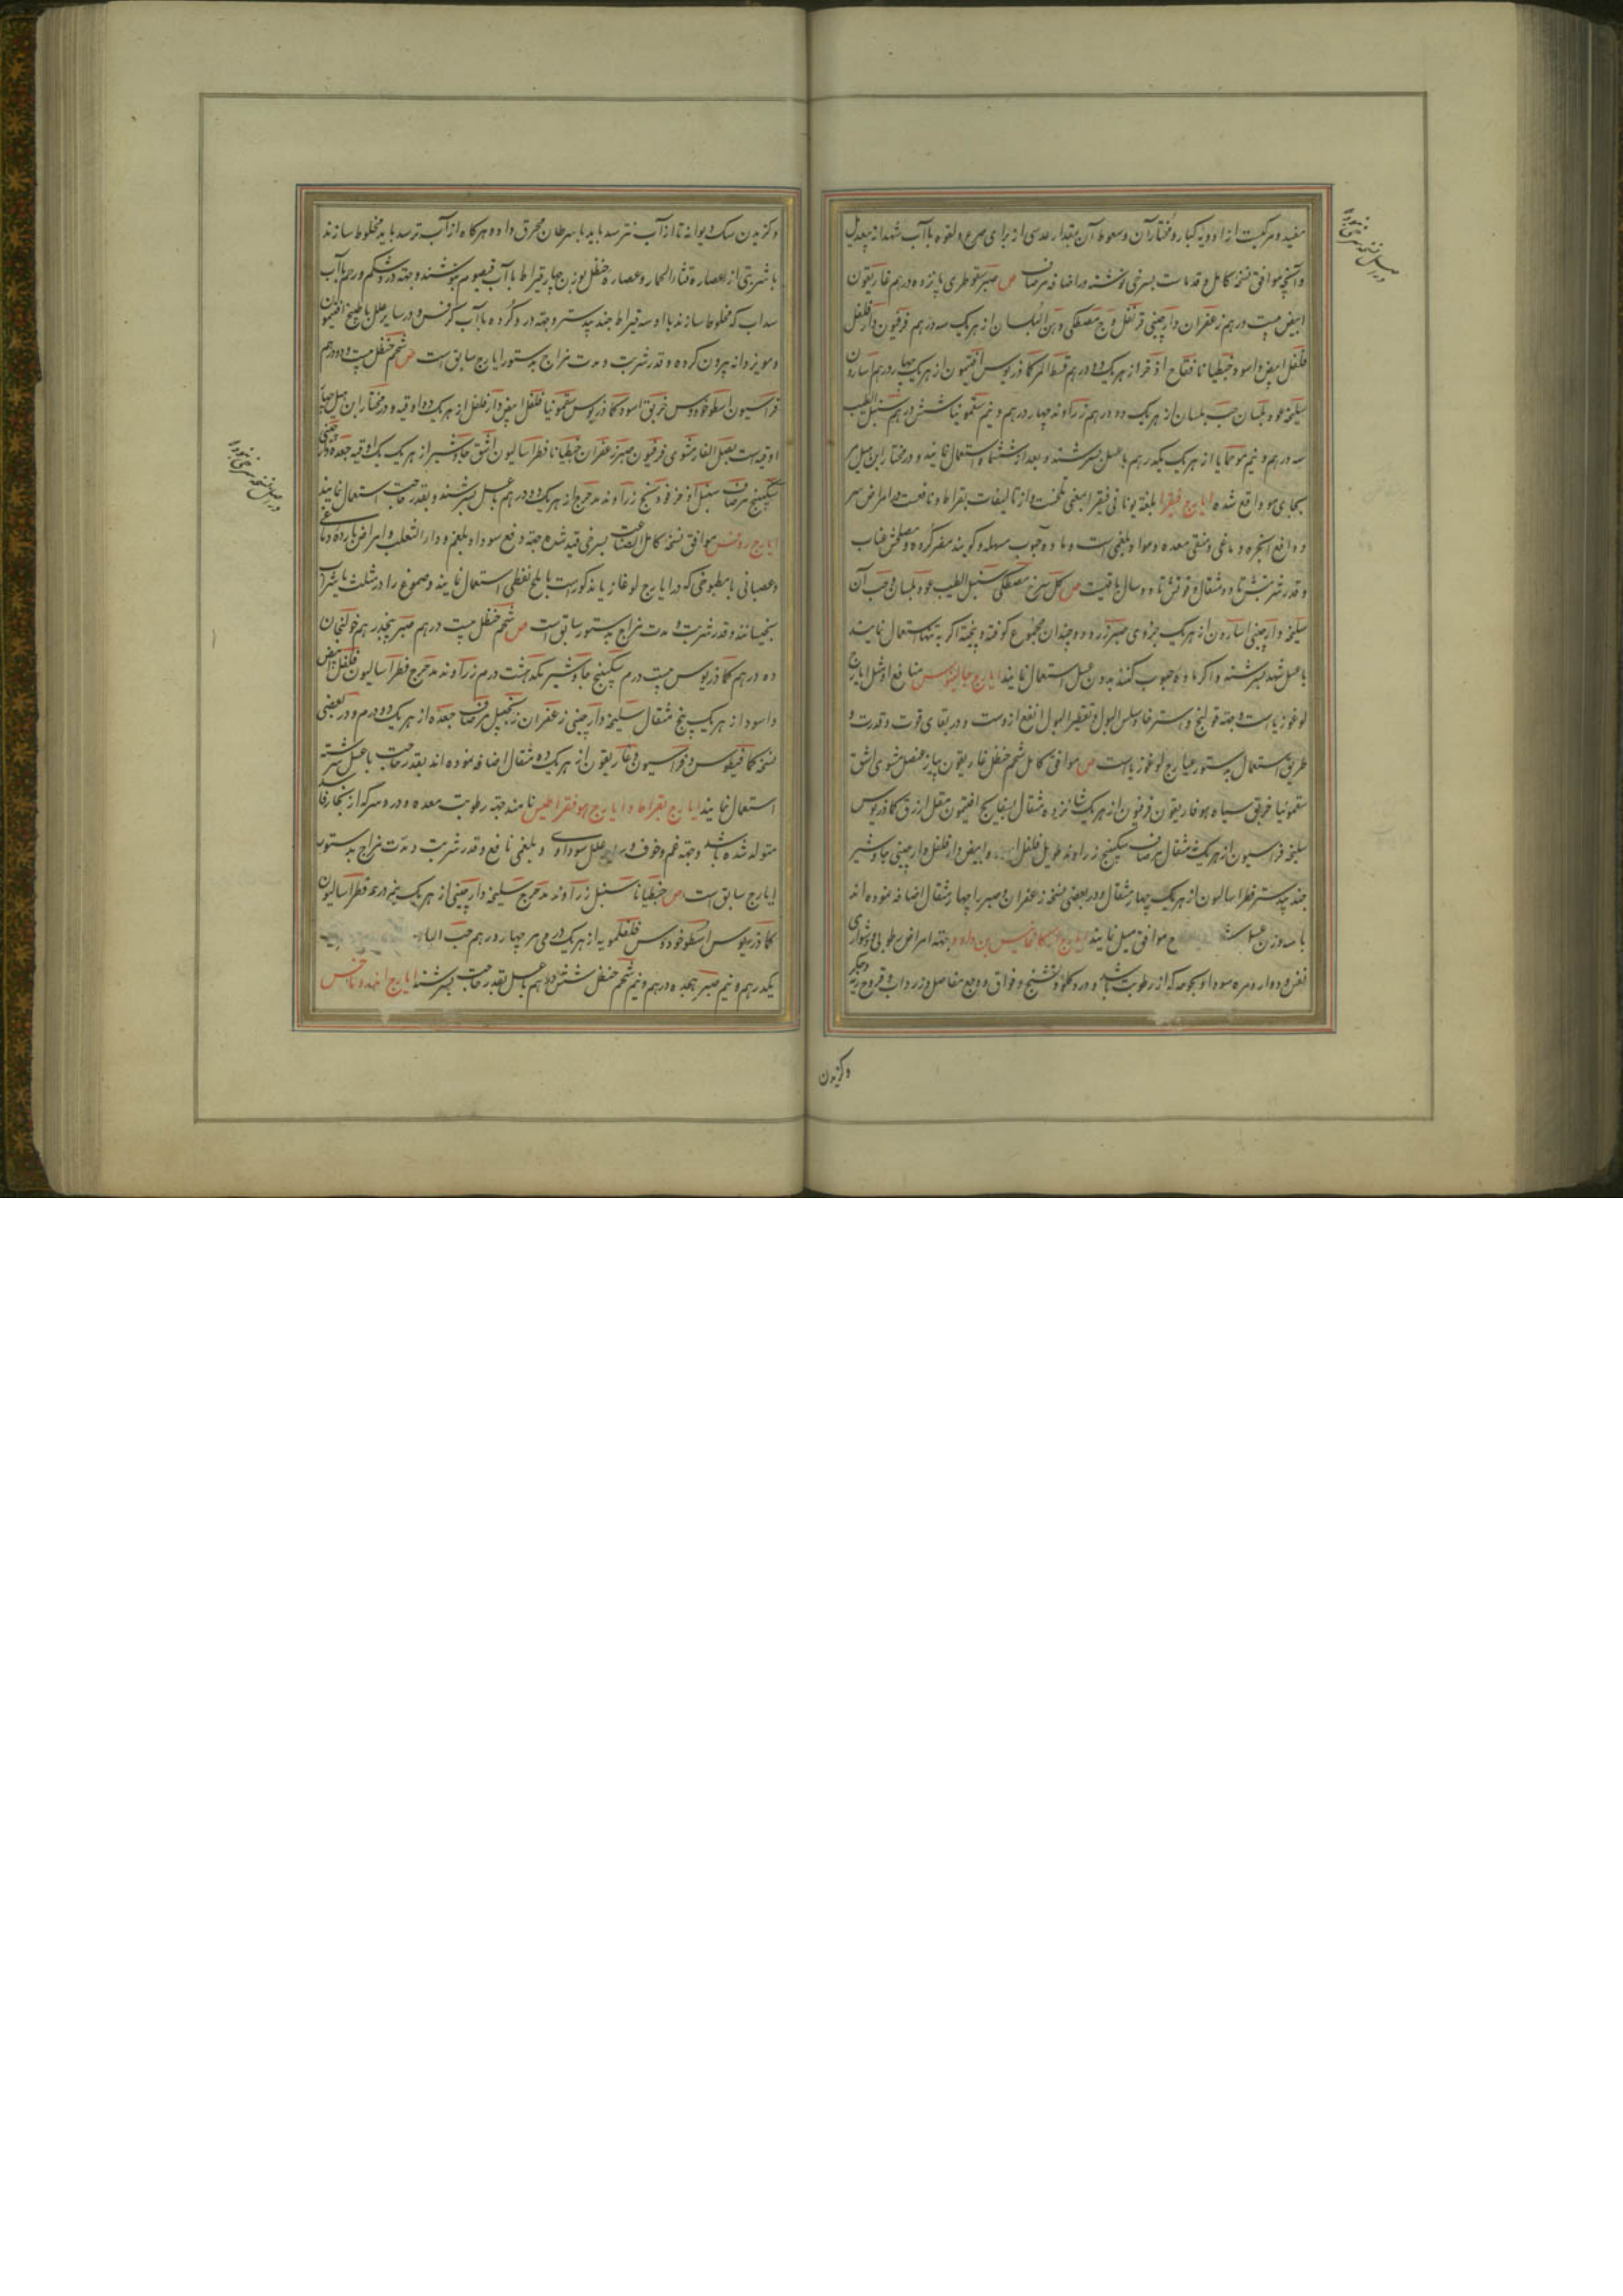 مفید و مرکبست از ادویه کبار و مختار آن و سعوط آن بمقدار عدسی از برای صرع و لقوه با آب شهدانه بیعدیل
و آنچه موافق نسخه کامل و قدماست بسرخی نوشته در اضافه مرصاف ص صبر سقوطری پانزده درهم غاریقون
ابیض بیست درهم زعفران دارچینی قرنفل وج مصطکی دهن البلسان از هریک سه درهم فرفیون دارفلفل
فلفل ابیض و اسود جنطیانا فقاح اذخر از هریک دو درهم قسط المر کمادریوس افتیمون از هریک چهار درهم اسارون
سلیخه عود بلسان حب بلسان از هریک دو درهم زراوند چهار درهم و نیم سقمونیا شش درهم سنبل الطیب
سه درهم و نیم مو حماما از هریک یکدرهم با عسل بسرشند و بعد از ششماه استعمال نمایند و در مختار ابن هبل مر
بجای مو واقع شده ایارج فیقرا بلغة یونانی فیقرا بمعنی تلخست و از تالیفات بقراط و نافعست امراض سر
و دافع ابخره دماغی و منقی معده و مواد بلغمی است و ماده حبوب مسهله و کویند مضر کرده و مصلحش عناب
و قدر شربتش تا دو مثقال و قوتش تا دو سال باقیست ص کل سرخ مصطکی سنبل الطیب عود بلسان و حب آن
سلیخه دارچینی اسارون از هریک جزوی صبر زرد دو چندان مجموع کوفته و بیخته اکر به تنها استعمال نمایند
با عسل شهد بسرشند و اکر ماده حبوب کنند بدون عسل استعمال نمایند ایارج جالینوس منافع او مثل ایارج
لوغوزیاست و جهة قولنج و استرخا و سلس البول و تقطیر البول انفع ازوست و در بقای قوت و قدرت و
طریق استعمال بدستور ایارج لوغوزیا است ص موافق کامل شحم حنظل غاریقون پیاز عنصل مشوی اشق
سقمونیا خربق سیاه هوفاریقون فرفیون از هریک شانزده مثقال بسفایج افتیمون مقل ازرق کمادریوس
سلیخه فراسیون از هریک مثقال مرصاف سکبینج زراوند طویل فلفل و ابیض دارفلفل دارچینی جاوشیر
جندبیدستر فطراسالیون از هریک چهار مثقال و در بعضی نسخه زعفران و صبر را چهار مثقال اضافه نموده اند
با سه وزن عسل موافق میل نمایند ایارج جهة امراض رطوبی و دشواری
نفس و دوار و مره سودا و بحوحه که از رطوبت باشد و درد کلو و تشنج و فواق و وجع مفاصل و زرداب و قروح ریه و جکر
و کزیدن
وکزیدن سک دیوانه تا از آب نترسد باید با سرطان محرق داد و هرکاه از آب ترسد باید مخلوط سازند
با شربتی از عصاره قثاء الحمار و عصاره حنظل بوزن چهار قیراط با آب قیصوم بنوشند و جهة درد شکم و رحم با آب
سداب که مخلوط سازند با او سه قیراط جندبیدستر و جهة درد کرده با آب کرفس و در سایر علل با طبیخ افتیمون
و مویز دانه بیرون کرده و قدر شربت و مدت مزاج بدستور ایارج سابق است ص شحم حنظل بیست و دو درهم
فراسیون اسطوخودوس خربق اسود کمادریوس سقمونیا فلفل ابیض دارفلفل از هریک دو اوقیه و در مختار ابن هبل چهار
اوقیه است بصل الفار مشوی فرفیون صبر زعفران جنطیانا فطراسالیون اشق جاوشیر از هریک یک اوقیه جعده دارچینی
سکبینج مرصاف سنبل اذخر فودنج زراوند مدحرج از هریک دو درهم با عسل بسرشند و بقدر حاجت استعمال نمایند
ایارج روفس موافق نسخه کامل الصناعت بسرخی قید شده جهة دفع سودا و بلغم و داء الثعلب و امراض بارده دماغی
و عصبانی با مطبوخی که در ایارج لوغازیا مذکور است با ملح نفطی استعمال نمایند و صموغ را در مثلث یا شراب
بخیسانند و قدر شربت و مدت مزاج بدستور سابق است ص شحم حنظل بیست درهم صبر پنجدرهم خولنجان
ده درهم کمادریوس بیست درم سکبینج جاوشیر یک هشت درم زراوند مدحرج فطراسالیون فلفل ابیض
و اسود از هریک پنج مثقال سلیخه دارچینی زعفران زنجبیل مرصاف جعده از هریک دو درم و در بعضی
نسخه کمافیطوس و فراسیون و غاریقون از هریک ده مثقال اضافه نموده اند بقدر حاجت با عسل سرشته
استعمال نمایند ایارج بقراط و ایارج هوفقراطیس نامند جهة رطوبت معده و درد سر که از بخار فاسد
متولد شده باشد و جهة غم و خوف و سایر علل سوداوی و بلغمی نافع و قدر شربت و مدت مزاج بدستور
ایارج سابق است ص جنطیانا سنبل زراوند مدحرج سلیخه دارچینی از هریک پنج درم فطراسالیون
کمادریوس اسطوخودوس فلفلمویه از هریک درمی مر چهار درهم حب
یکدرهم و نیم صبر هجده درهم و نیم شحم حنظل شش درهم با عسل بقدر حاجت بسرشند ایارج